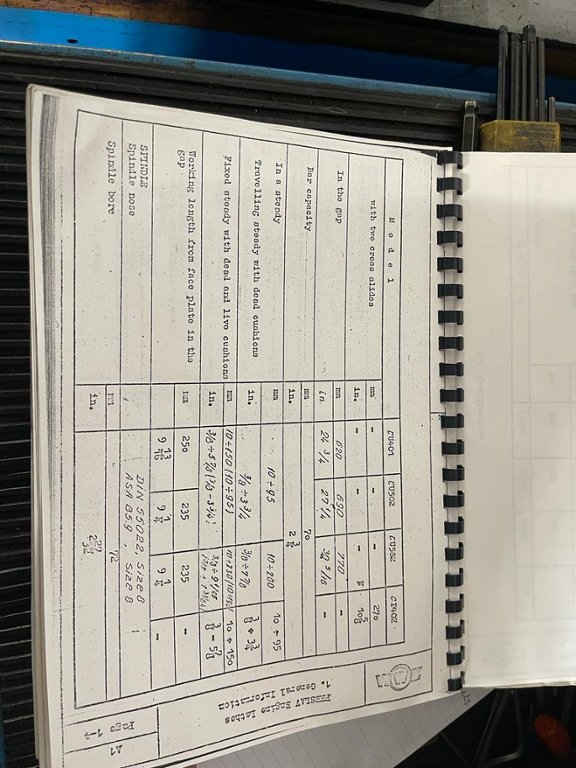 FERSLAV Engine Lathes
1. General Information
A1
Page 1-4
M o d e l CU401 CU502 CU582 CP402
with two cross slides mm - - - 270
in. - - - 10 5/8
In the gap mm 620 690 770 -
in 24 3/4 27 1/4 30 5/16 -
Bar capacity mm 70
in. 2 3/4
In a steady mm 10 ÷ 95 10÷200 10 ÷ 95
Travelling steady with dead cushions in. 3/8 ÷ 3 3/4 3/8 ÷ 7 7/8 3/8 ÷ 3 3/4
Fixed steady with dead and live cushions mm 10÷150 (10÷95) 10 ÷ 150
in.
Working length from face plate in the gap mm 250 235 235 -
9 13/16 9 1/4 9 1/4 -
SPINDLE
Spindle nose DIN 55022, SIZE 8
ASA B5.9, SIZE 8
Spindle bore mm 72
in. 2 27/32